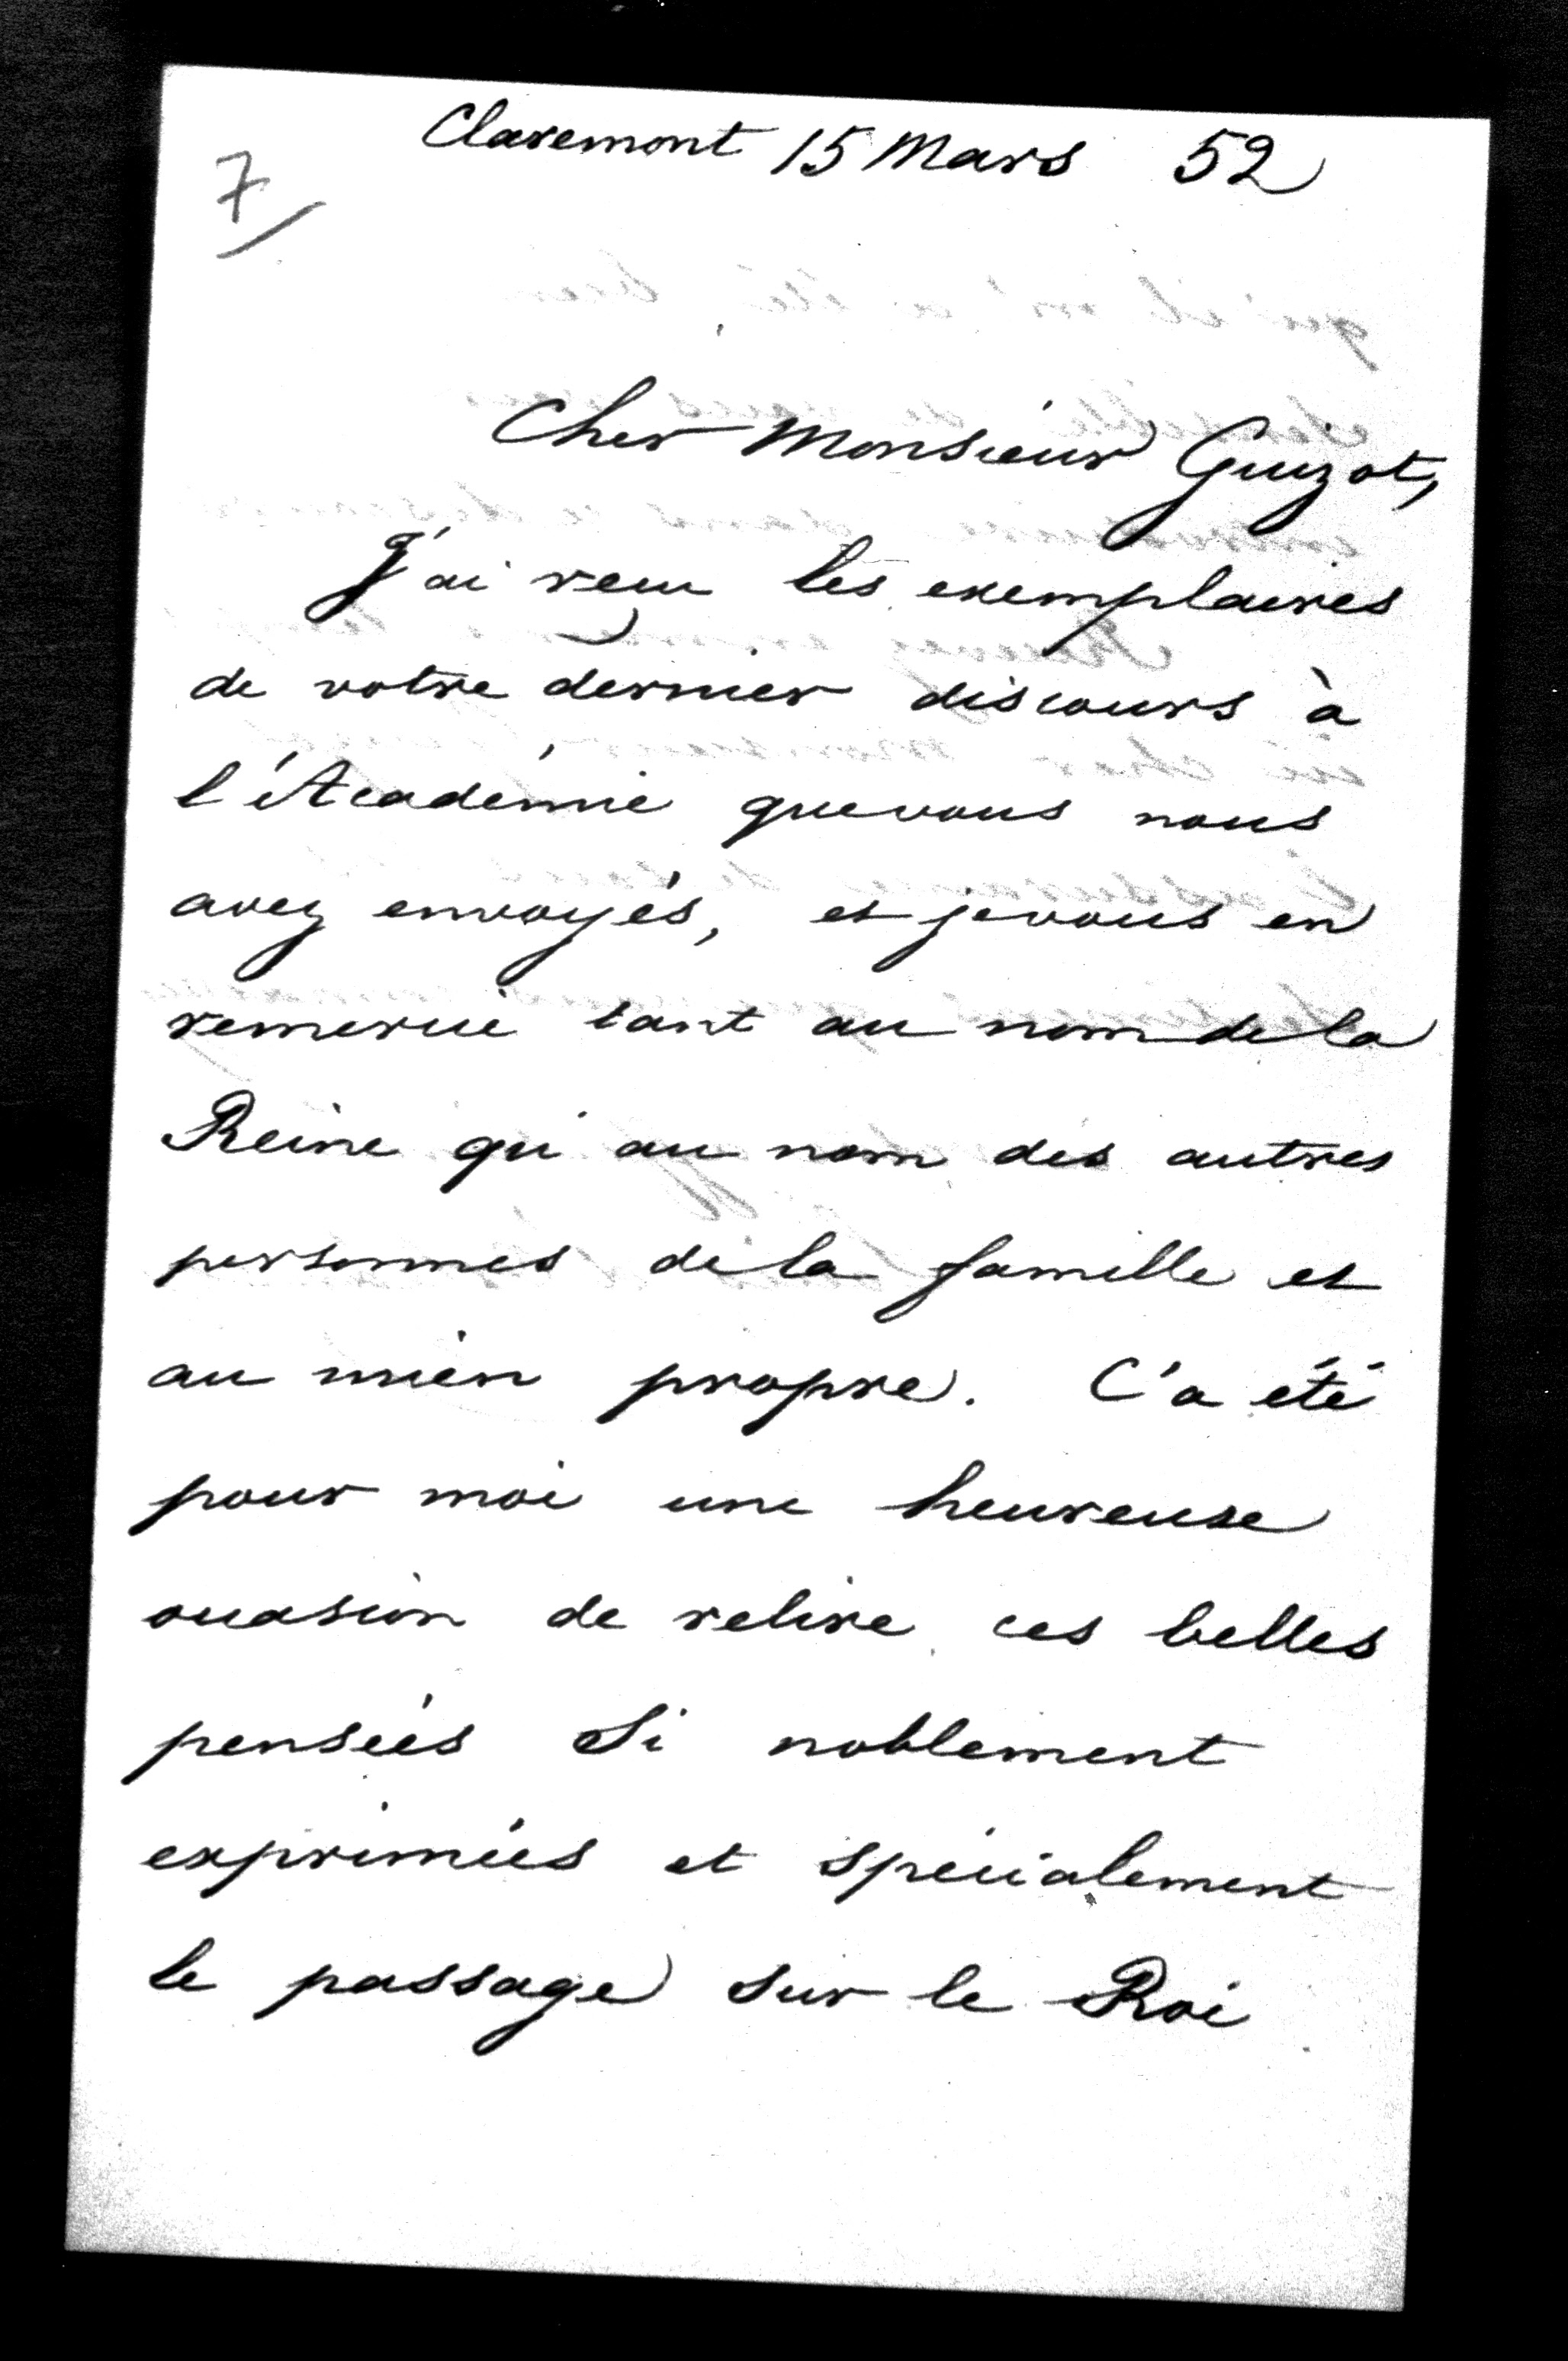 Claremont 15 Mars 52
7
Cher Monsieur Guizot,
J'ai reçu les exemplaires
de votre dernier discours à
l'Académie que vous nous
avez envoyés, et je vous en
remercie tant au nom de la
Reine qu'au nom des autres
personnes de la famille et
au mien propre. C'a été
pour moi une heureuse
occasion de relire ces belles
pensées si noblement
exprimées et spécialement
le passage sur le Roi